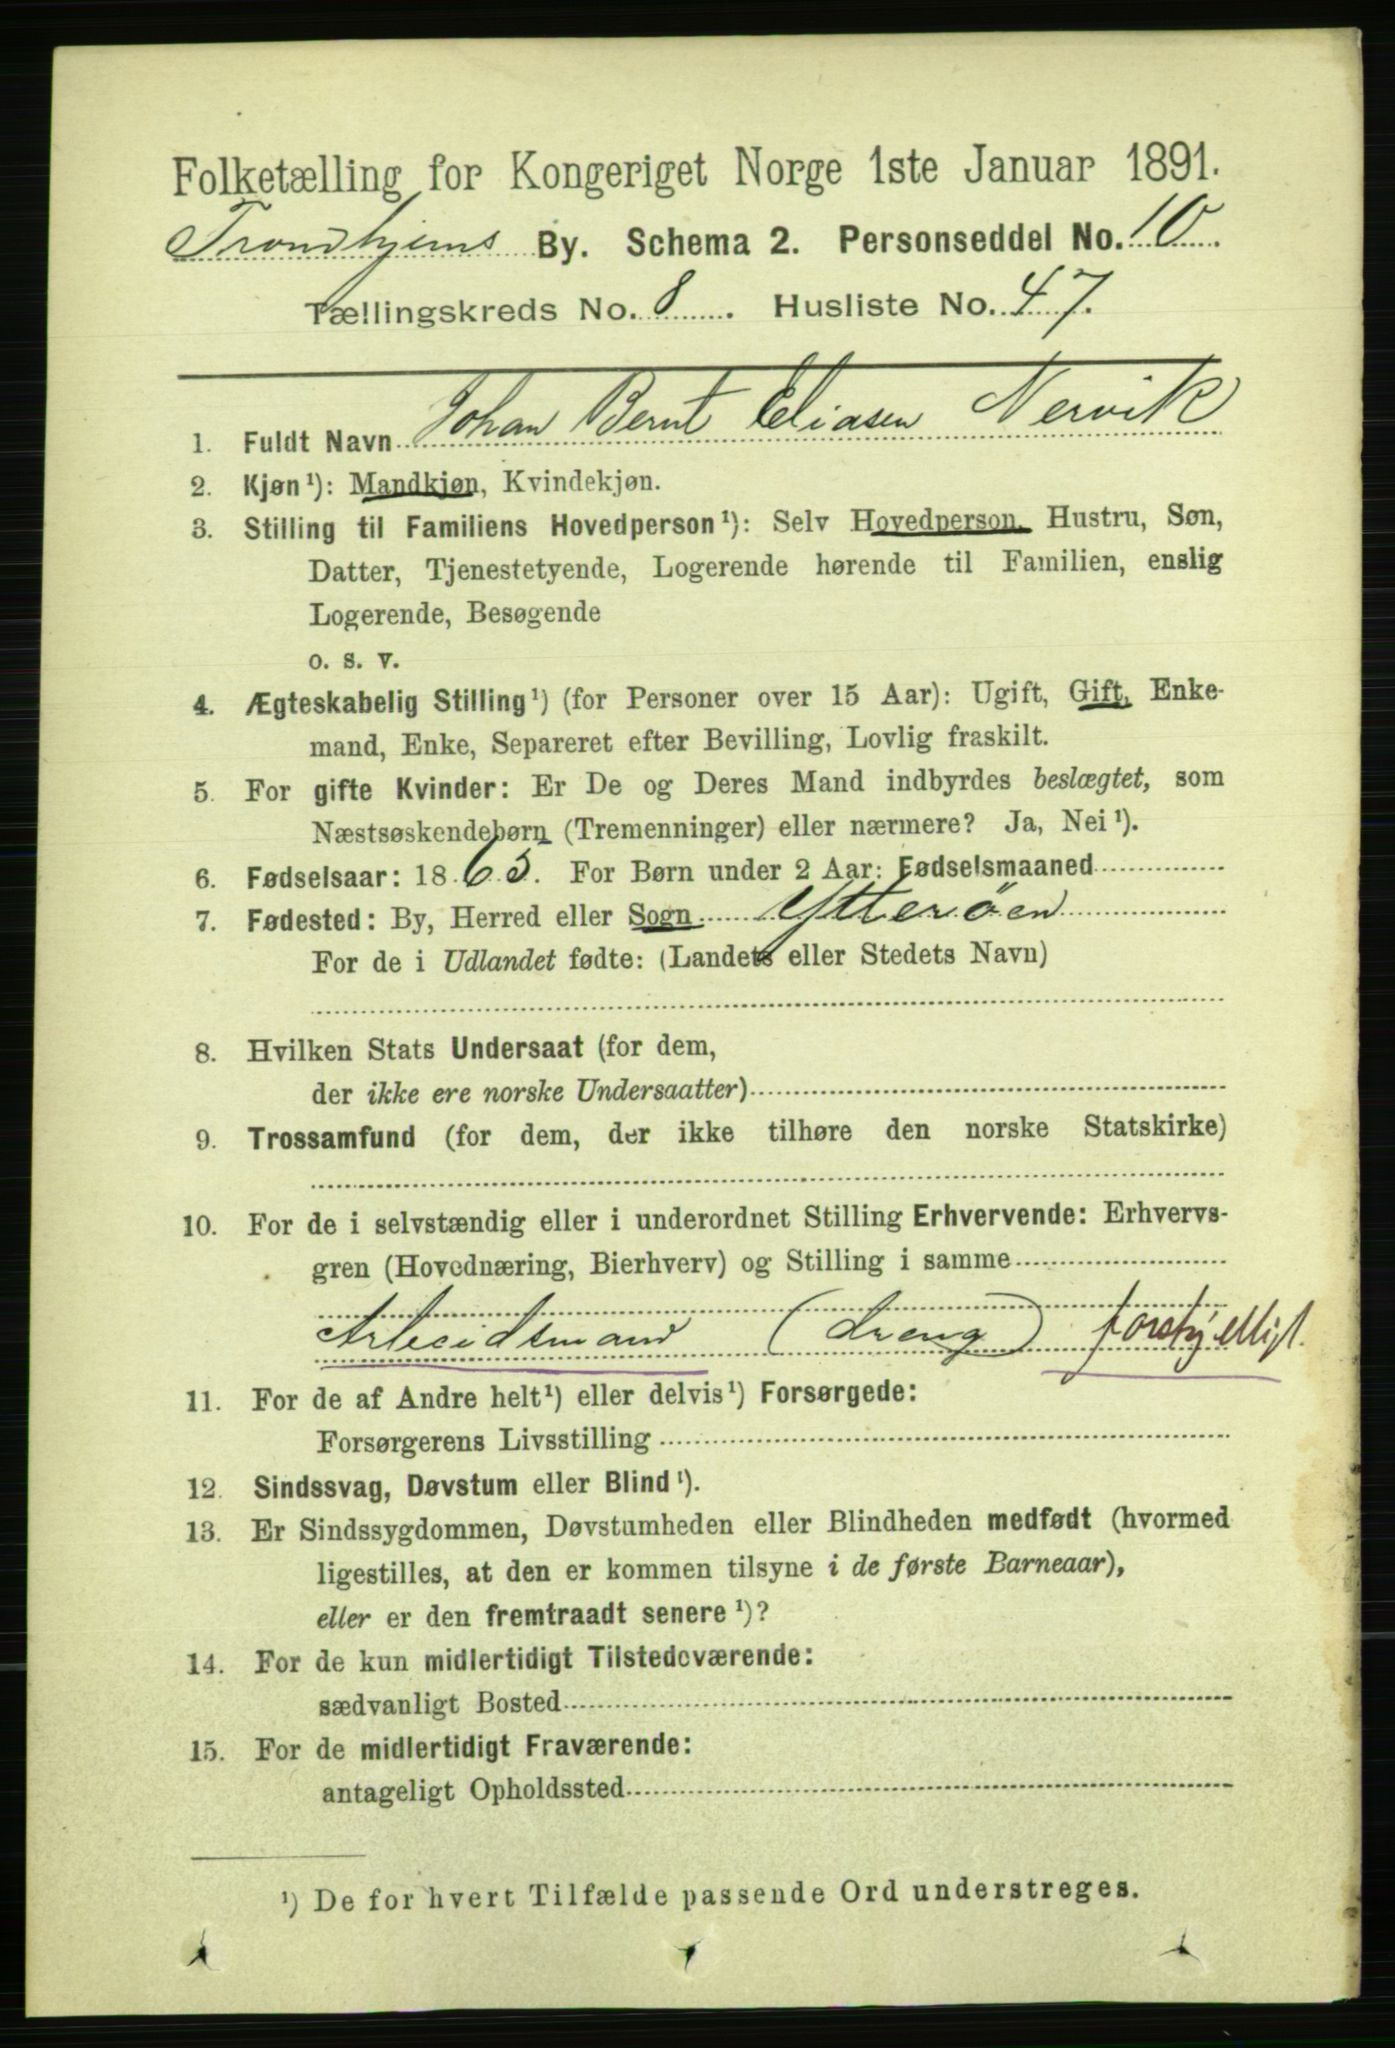 Folketælling for Kongeriget Norge 1ste Januar 1891.
Trondhjems By. Schema 2. Personseddel No. 10.
Tællingskreds No. 8. Husliste No. 47.
1. Fuldt Navn Johan Bernt Eliasen Nervik
2. Kjøn¹): Mandkjøn, Kvindekjøn.
3. Stilling til Familiens Hovedperson¹): Selv Hovedperson, Hustru, Søn,
Datter, Tjenestetyende, Logerende hørende til Familien, enslig
Logerende, Besøgende
o. s. v.
4. Ægteskabelig Stilling¹) (for Personer over 15 Aar): Ugift, Gift, Enke-
mand, Enke, Separeret efter Bevilling, Lovlig fraskilt.
5. For gifte Kvinder: Er De og Deres Mand indbyrdes beslægtet, som
Næstsøskendebørn (Tremenninger) eller nærmere? Ja, Nei¹).
6. Fødselsaar: 1863. For Børn under 2 Aar: Fødselsmaaned
7. Fødested: By, Herred eller Sogn Ytterøen
For de i Udlandet fødte: (Landets eller Stedets Navn)
8. Hvilken Stats Undersaat (for dem,
der ikke ere norske Undersaatter)
9. Trossamfund (for dem, der ikke tilhøre den norske Statskirke)
10. For de i selvstændig eller i underordnet Stilling Erhvervende: Erhvervs-
gren (Hovednæring, Bierhverv) og Stilling i samme
Arbeidsmand (dreng) forskjelligt.
11. For de af Andre helt¹) eller delvis¹) Forsørgede:
Forsørgerens Livsstilling
12. Sindssvag, Døvstum eller Blind¹).
13. Er Sindssygdommen, Døvstumheden eller Blindheden medfødt (hvormed
ligestilles, at den er kommen tilsyne i de første Barneaar),
eller er den fremtraadt senere¹)?
14. For de kun midlertidigt Tilstedeværende:
sædvanligt Bosted
15. For de midlertidigt Fraværende:
antageligt Opholdssted
¹) De for hvert Tilfælde passende Ord understreges.